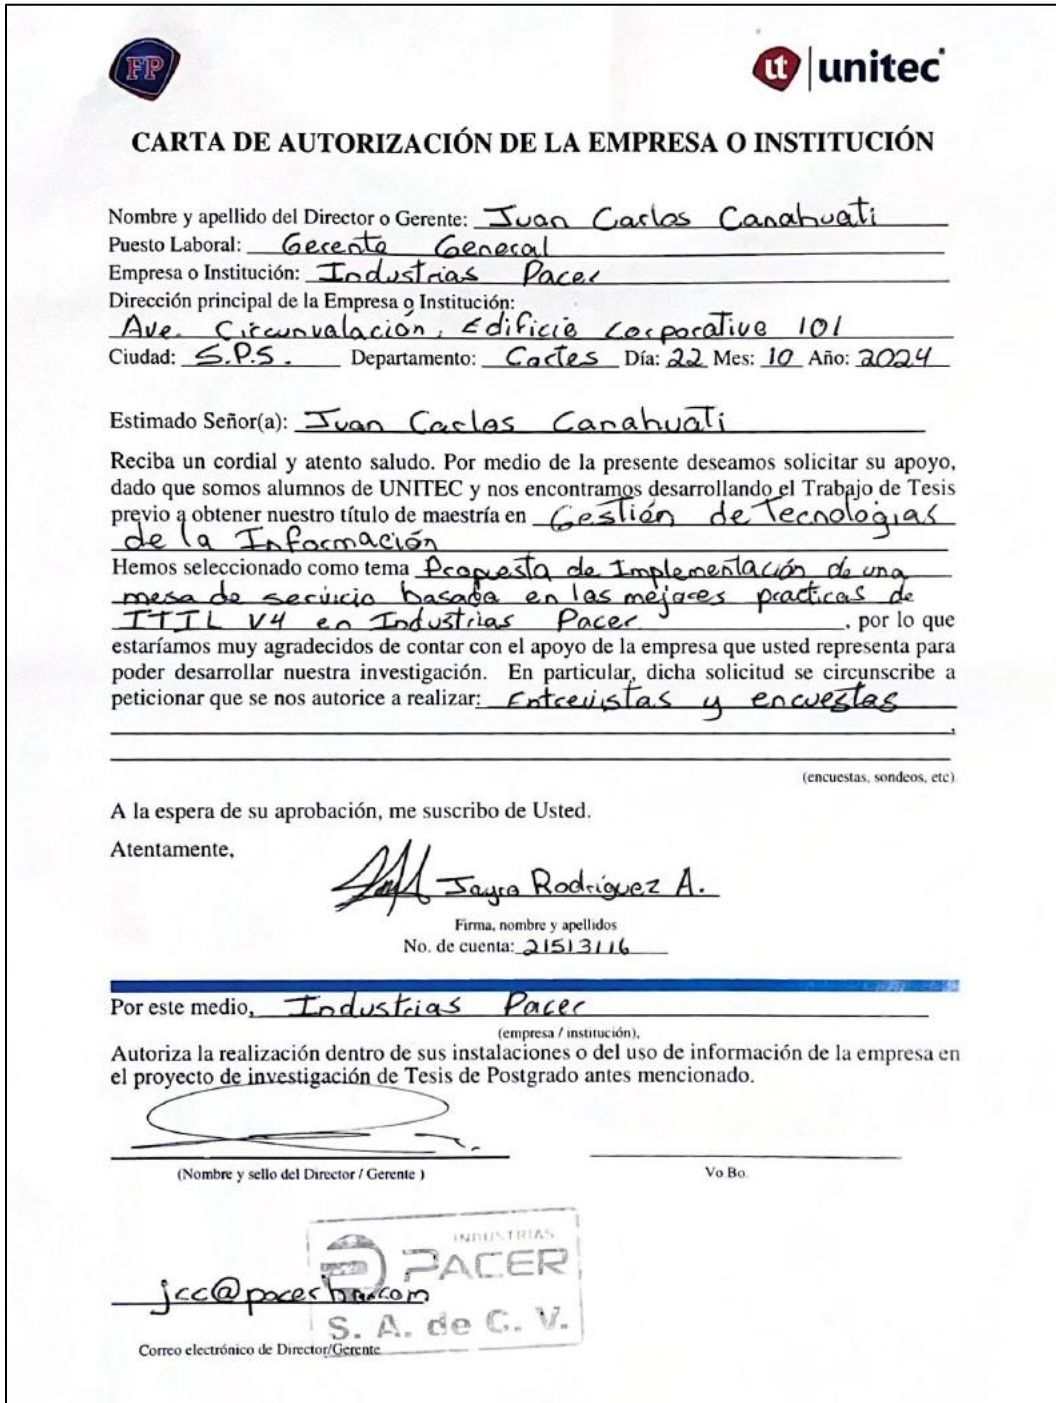 FP
ut unitec
CARTA DE AUTORIZACIÓN DE LA EMPRESA O INSTITUCIÓN
Nombre y apellido del Director o Gerente: Juan Carlos Canahuati
Puesto Laboral: Gerente General
Empresa o Institución: Industrias Pacer
Dirección principal de la Empresa o Institución:
Ave. Circunvalación, Edificio Corporativo 101
Ciudad: S.P.S. Departamento: Cortes Día: 22 Mes: 10 Año: 2024
Estimado Señor(a): Juan Carlos Canahuati
Reciba un cordial y atento saludo. Por medio de la presente deseamos solicitar su apoyo,
dado que somos alumnos de UNITEC y nos encontramos desarrollando el Trabajo de Tesis
previo a obtener nuestro título de maestría en Gestión de Tecnologias
de la Información
Hemos seleccionado como tema Propuesta de Implementación de una
mesa de servicio basada en las mejores practicas de
ITIL V4 en Industrias Pacer, por lo que
estaríamos muy agradecidos de contar con el apoyo de la empresa que usted representa para
poder desarrollar nuestra investigación. En particular, dicha solicitud se circunscribe a
peticionar que se nos autorice a realizar: Entrevistas y encuestas
,
(encuestas, sondeos, etc)
A la espera de su aprobación, me suscribo de Usted.
Atentamente,
Jayro Rodriguez A.
Firma, nombre y apellidos
No. de cuenta: 21513116
Por este medio, Industrias Pacer
(empresa / institución),
Autoriza la realización dentro de sus instalaciones o del uso de información de la empresa en
el proyecto de investigación de Tesis de Postgrado antes mencionado.
(Nombre y sello del Director / Gerente )
Vo.Bo.
INDUSTRIAS
PACER
jcc@pacerhn.com
S. A. de C. V.
Correo electrónico de Director/Gerente